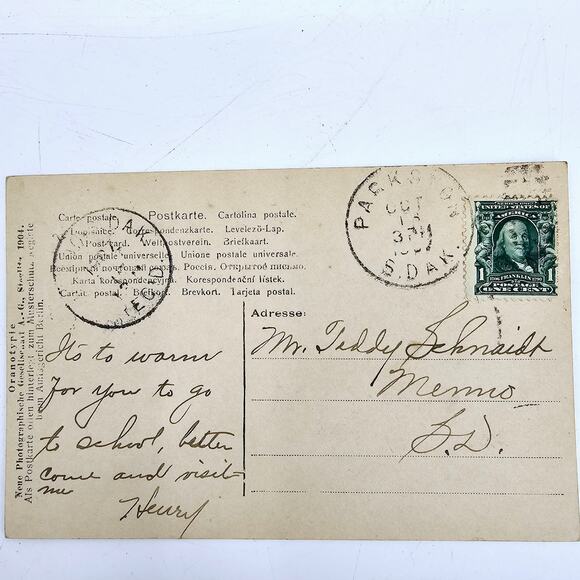 Carte postale. Postkarte. Cartolina postale.
Correspondenzkarte. Levelező-Lap.
Post card. Weltpostverein. Brietkaart.
Union postale universelle. Unione postale universale.
Россія. Открытое письмо.
Karta korespondencyjna. Korespondenční lístek.
Cartāt postal. Brefkort. Brevkort. Tarjeta postal.
Oranotypie
Neue Photographische Gesellschaft A.-G., Steglitz 1904.
Als Postkarte offen hinterlegt zum Musterschutz
beim Amtsgericht Berlin.
PARKSTON
OCT
3 PM
S. DAK.
UNITED STATES OF
AMERICA
1 FRANKLIN 1
POSTAGE
ONE CENT
DAK.
Its to warm
for you to go
to school, better
come and visit
me
Henry
Adresse:
Mr. Teddy Schnaidt
Menno
S.D.